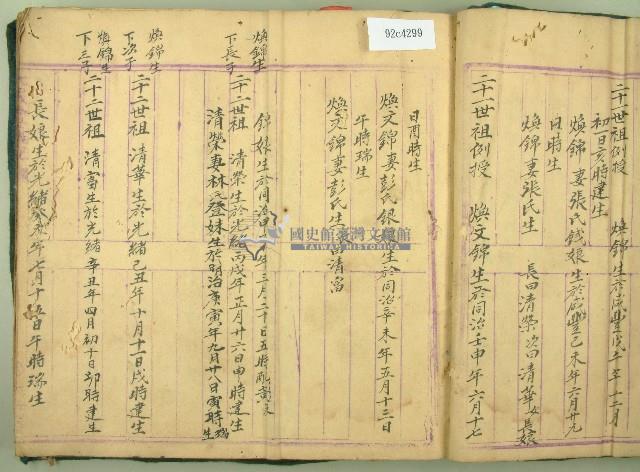 92c4299
二十一世祖例授 煥錦生於咸豐戊午年十二月
初一日亥時建生
煥錦妻張氏錢娘生於咸豐己未年六月廿九
日時生
煥錦妻張氏生 長曰清榮次曰清華女長娘
二十一世祖例授 煥文錦生於同治壬申年六月十七
日酉時生
煥文錦妻彭氏銀娘生於同治辛未年五月十三日
午時瑞生
煥文錦妻彭氏生 曰清富
錦娘生於同治 年三月二十日丑時
煥錦生
下長子
二十二世祖 清榮生於光緒丙戌年正月廿六日申時建生
清榮妻林氏登妹生於明治庚寅年九月廿八日寅時瑞生
煥錦生
下次子
二十二世祖 清華生於光緒己丑年十月十一日戌時建生
煥錦生
下三子
二十二世祖 清富生於光緒辛丑年四月初十日卯時建生
長娘生於光緒 年七月十五日午時瑞生
國史館臺灣文獻館
TAIWAN HISTORICA